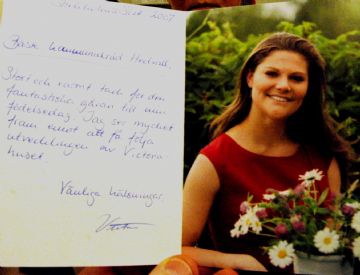 2007
Bäste kommunalråd
Stort och varmt tack för den
fantastiska gåvan till min
födelsedag. Jag ser mycket
fram emot att få följa
utvecklingen av Victoria-
huset.
Vänliga hälsningar,